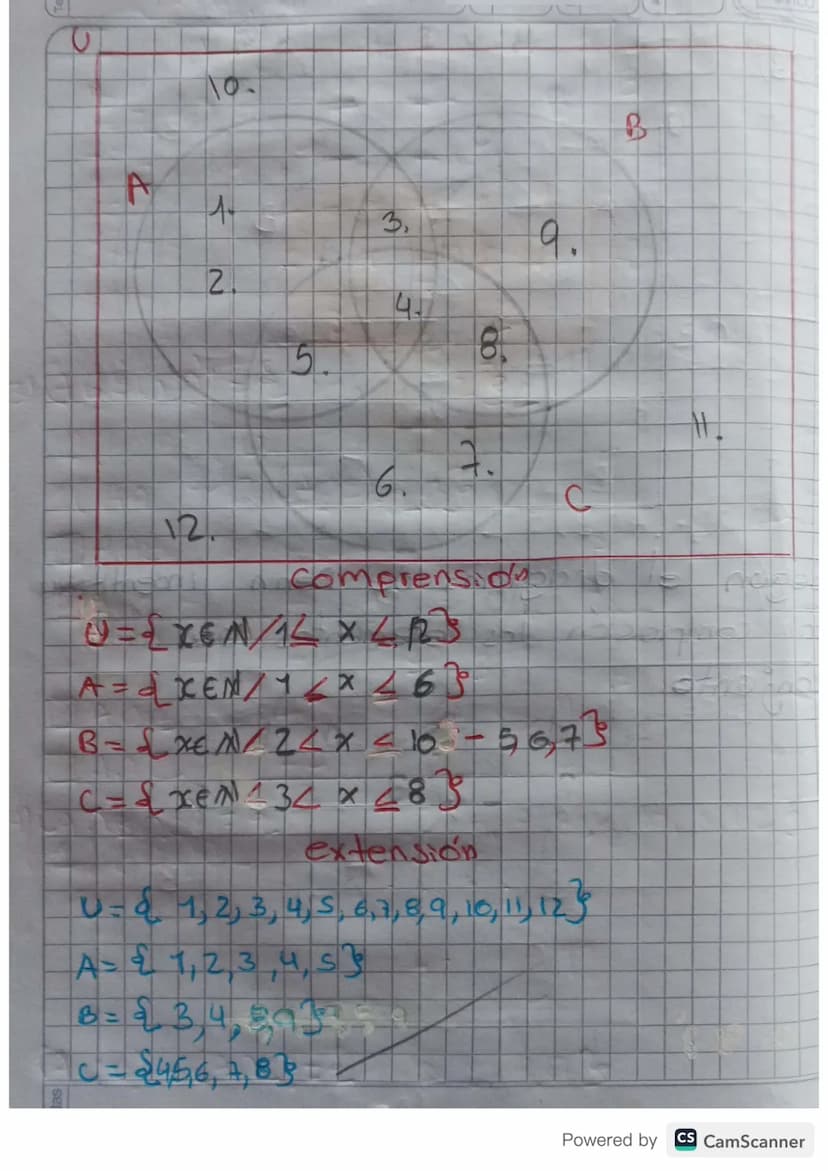 U
10.
B
A
1.
3.
9.
2.
4.
8.
5.
11.
7.
6.
C
12.
comprensión
U={x∈N/1≤ x ≤ 12}
A={x∈N/ 1 ≤ x ≤ 6}
B={x∈N∠2< x ≤ 10 - 5,6,7}
C={x∈N≤3< x ≤8}
extensión
U={ 1,2,3,4,5,6,7,8,9,10,11,12}
A={ 1,2,3,4,5}
B={ 3,4,8,9}
C={4,5,6,7,8}
Powered by CS CamScanner